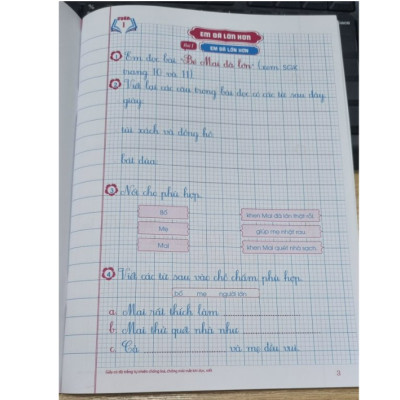 TUẦN
1
EM ĐÃ LỚN HƠN
Bài 1
EM ĐÃ LỚN HƠN
1 Em đọc bài "Bé Mai đã lớn" (xem SGK
trang 10 và 11).
2 Viết lại các câu trong bài đọc có các từ sau đây:
giày:
túi xách và đồng hồ:
bài dùa:
3 Nối cho phù hợp.
Bố
khen Mai đã lớn thật rồi.
Mẹ
giúp mẹ nhặt rau.
Mai
khen Mai quét nhà sạch.
4 Viết các từ sau vào chỗ chấm phù hợp.
bố mẹ người lớn
a. Mai rất thích làm
b. Mai thử quét nhà như
c. Cả và mẹ đều vui.
3